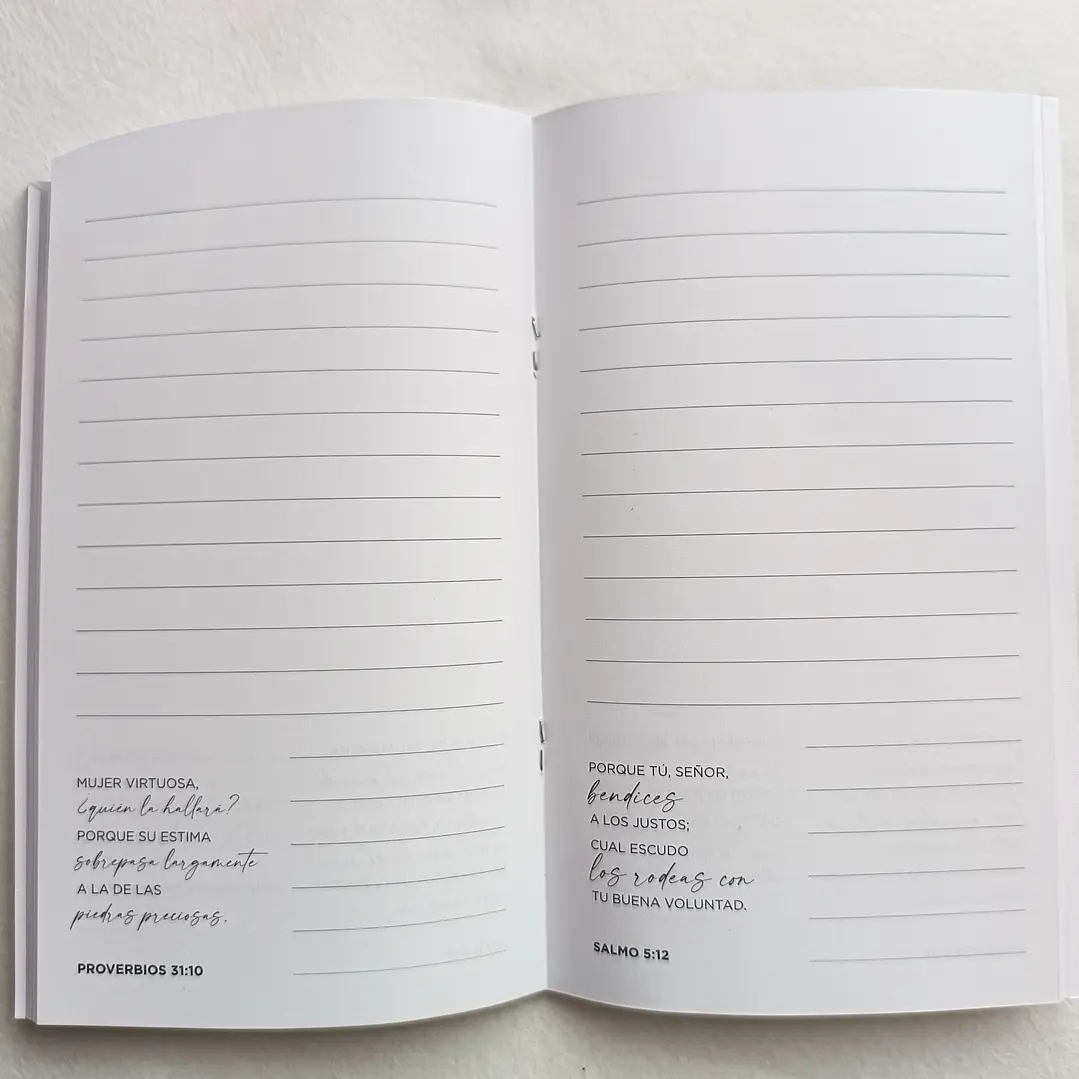 MUJER VIRTUOSA,
¿quién la hallará?
PORQUE SU ESTIMA
sobrepasa largamente
A LA DE LAS
piedras preciosas.
PROVERBIOS 31:10
PORQUE TÚ, SEÑOR,
bendices
A LOS JUSTOS;
CUAL ESCUDO
los rodeas con
TU BUENA VOLUNTAD.
SALMO 5:12